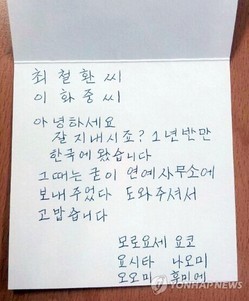 최철환씨
이화중씨
아녕하세요
잘 지내시죠? 1년반만
한국에 왔습니다
그때는 굳이 연예사무소에
보내주었다 도와주셔서
고맙습니다
모로요세 요코
요시타 나오미
오오미 후미에
YONHAPNEWS